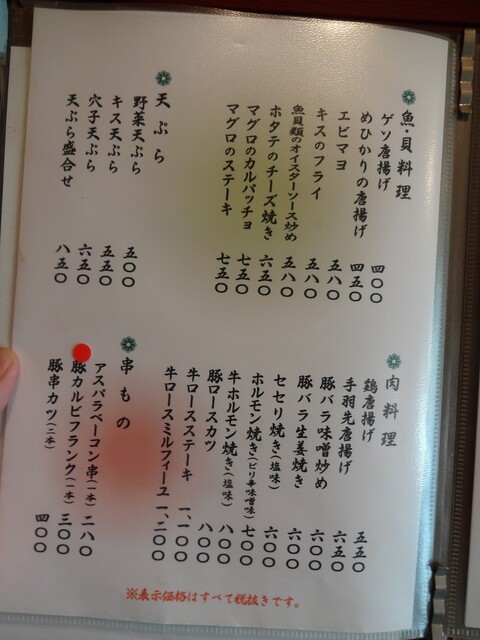 魚・貝料理
ゲソ唐揚げ 四〇〇
めひかりの唐揚げ 四五〇
エビマヨ 五八〇
キスのフライ 五八〇
魚貝類のオイスターソース炒め 五八〇
ホタテのチーズ焼き 六五〇
マグロのカルパッチョ 七五〇
マグロのステーキ 七五〇
天ぷら
野菜天ぷら 五〇〇
キス天ぷら 五五〇
穴子天ぷら 六五〇
天ぷら盛合せ 八五〇
肉料理
鶏唐揚げ 五五〇
手羽先唐揚げ 六五〇
豚バラ味噌炒め 六〇〇
豚バラ生姜焼き 六〇〇
セセリ焼き(塩味) 六〇〇
ホルモン焼き(ピリ辛味噌味) 七〇〇
牛ホルモン焼き(塩味) 八〇〇
豚ロースカツ 八〇〇
牛ロースステーキ 一、一〇〇
牛ロースミルフィーユ 一、二〇〇
串もの
アスパラベーコン串(一本) 二八〇
豚カルビフランク(一本) 三〇〇
豚串カツ(二本) 四〇〇
※表示価格はすべて税抜きです。